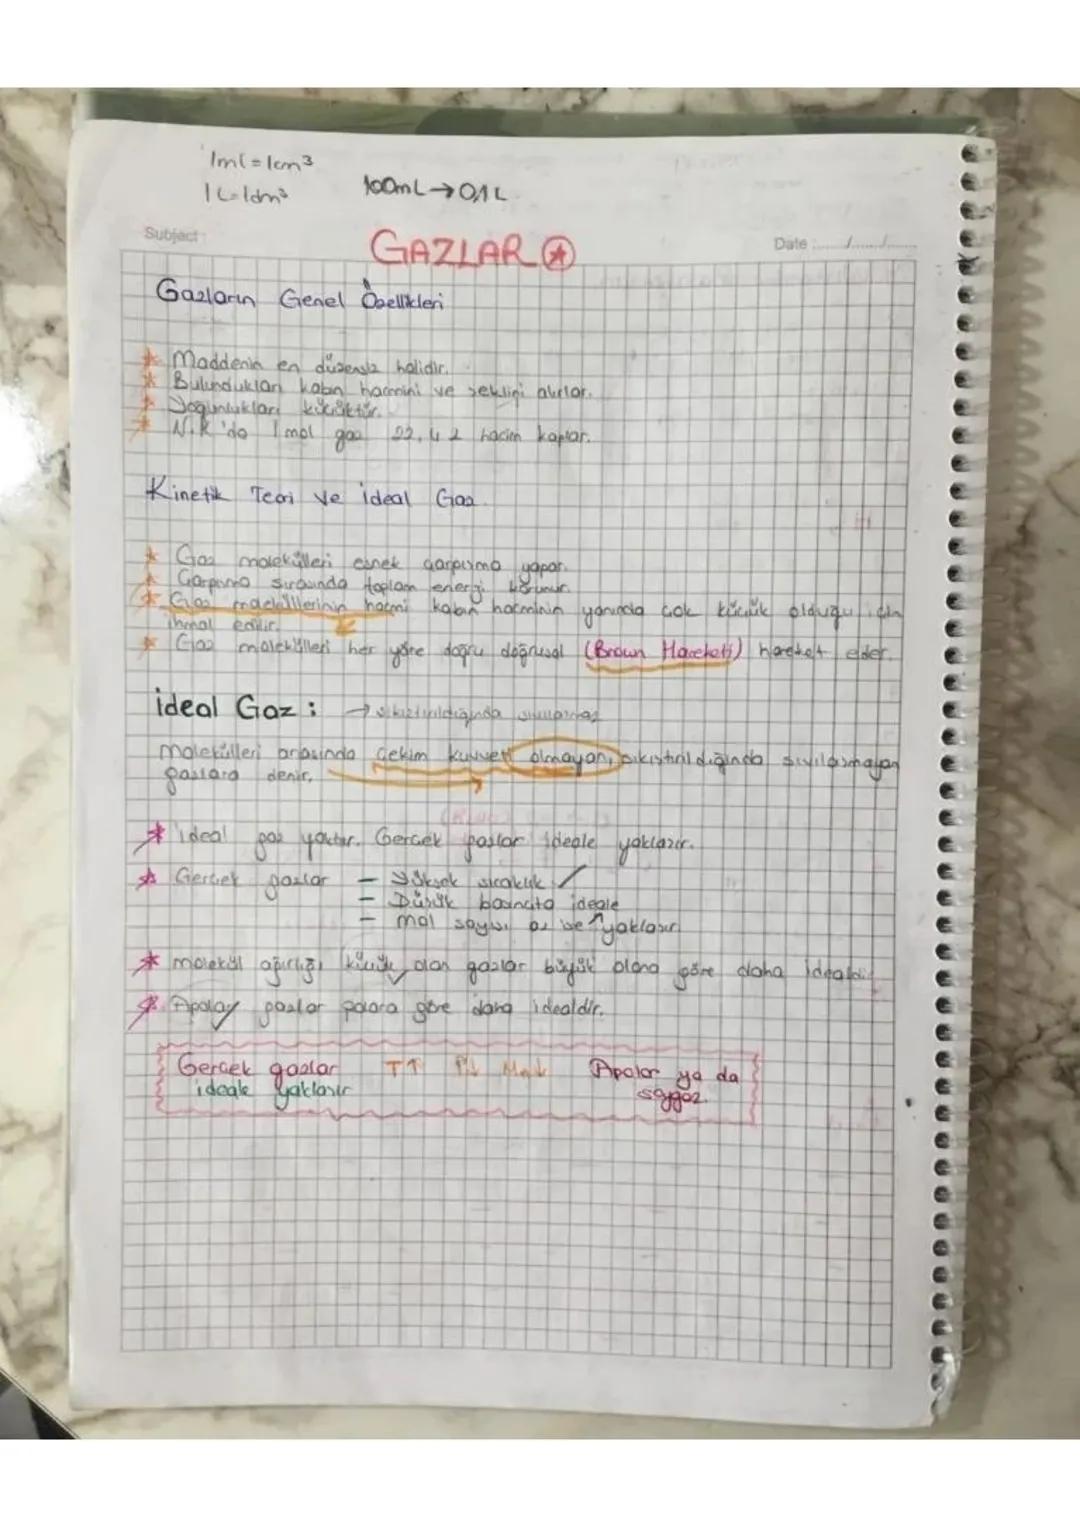 1ml = 1cm³
1L = 1dm³
100mL → 0,1 L
Subject:
Date :....../....../......
GAZLAR
Gazların Genel Özellikleri
Maddenin en düzensiz halidir.
Bulundukları kabın hacmini ve şeklini alırlar.
Yoğunlukları küçüktür.
N.K'da 1 mol gaz 22,4 L hacim kaplar.
Kinetik Teori ve ideal Gaz
Gaz molekülleri esnek çarpışma yapar.
Çarpışma sırasında toplam energi korunur.
Gaz moleküllerinin hacmi kabın hacminin yanında çok küçük olduğu için
ihmal edilir.
Gaz molekülleri her yöne doğru doğrusal (Brown Hareketi) hareket eder.
ideal Gaz : → sıkıştırıldığında sıvılaşmaz
molekülleri arasında çekim kuvveti olmayan, sıkıştırıldığında sıvılaşmayan
gazlara denir.
ideal gaz yoktur. Gerçek gazlar ideale yaklaşır.
Gerçek gazlar – Yüksek sıcaklık ✓
– Düşük basınçta ideale
– mol sayısı az ise yaklaşır
molekül ağırlığı küçük olan gazlar büyük olana göre daha idealdir
Apolar gazlar polara göre daha idealdir.
Gerçek gazlar T↑ P↓ Ma↓ Apolar ya da
ideale yaklaşır soygaz.